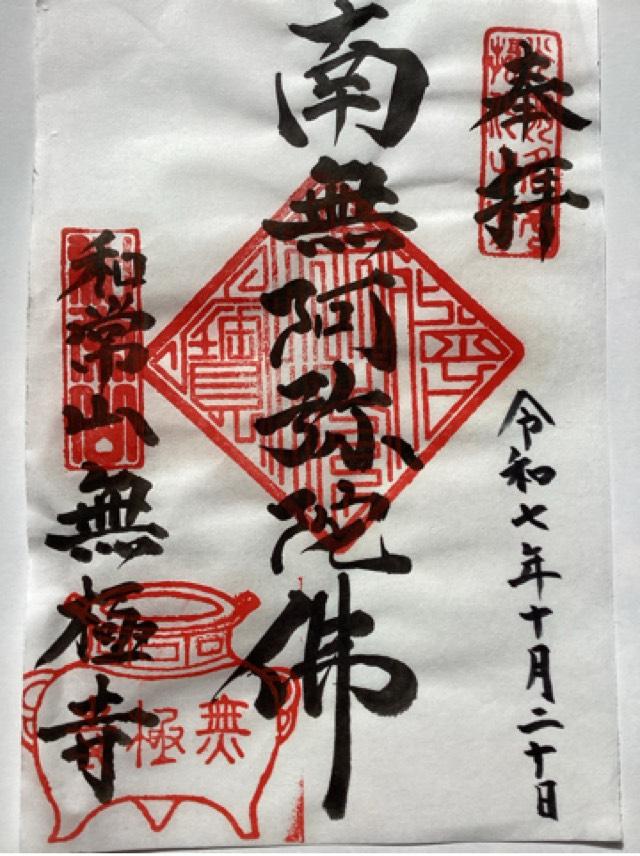 奉拝
令和七年十月二十日
南無阿弥陀佛
和常山無極寺
無極寺